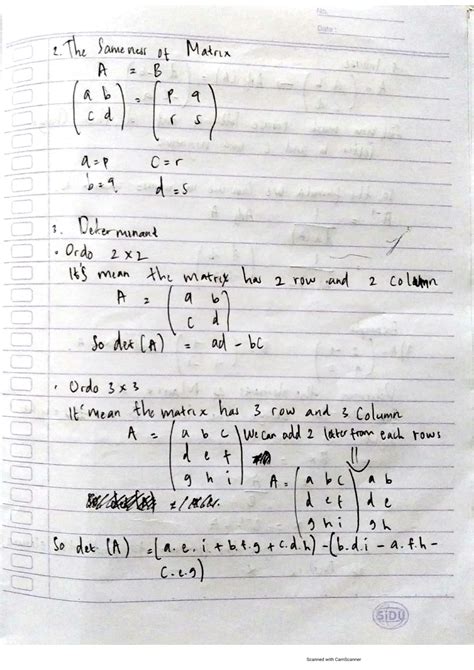 No.
Date:
2. The Sameness of Matrix
A = B
(a b) = (p q)
(c d) (r s)
a = p c = r
b = q d = s
3. Determinant
• Ordo 2 x 2
It's mean the matrix has 2 row and 2 column
A = (a b)
(c d)
So det (A) = ad - bc
• Ordo 3 x 3
It' mean the matrix has 3 row and 3 column
A = (a b c) We can add 2 later from each rows
(d e f)
(g h i)
A = (a b c) a b
(d e f) d e
(g h i) g h
So det (A) = (a.e.i + b.f.g + c.d.h) - (b.d.i - a.f.h -
c.e.g)
SiDU
Scanned with CamScanner